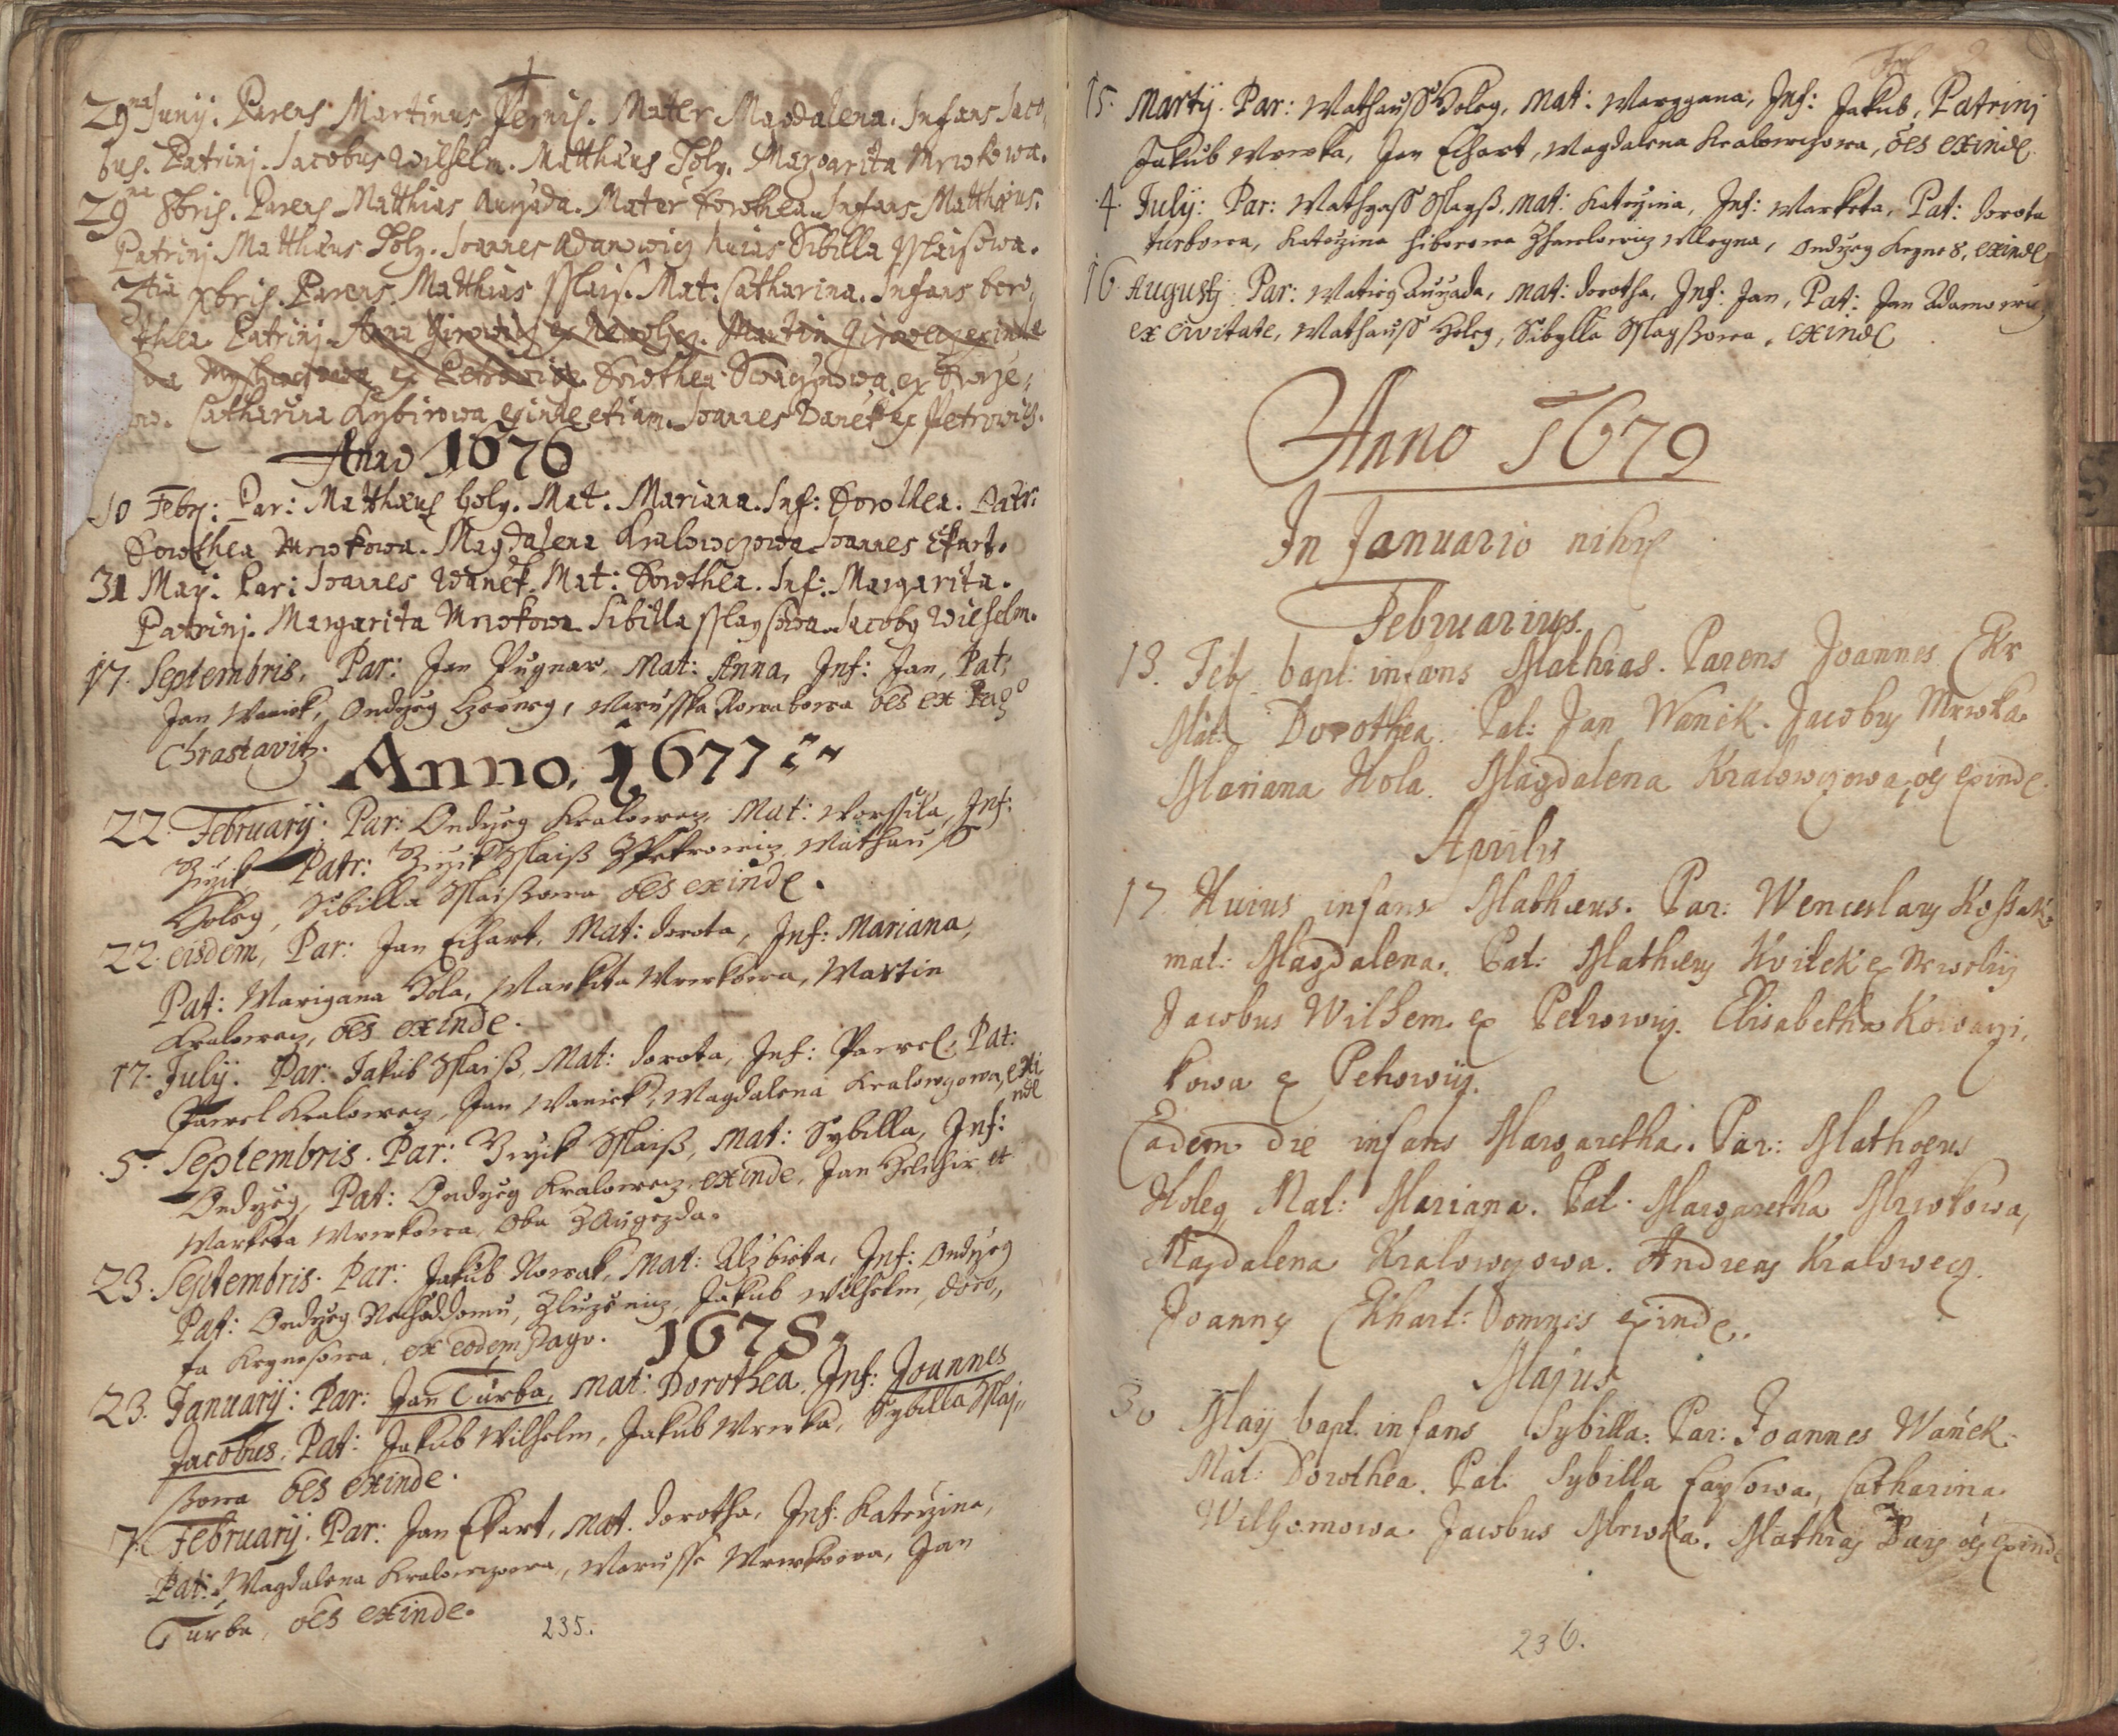 29na Junij. Parens Martinus Pernis. Mater Magdalena. Infans Jaco,
bus. Patrinj. Jacobus Wilhelm. Matthæus Holy. Margarita Mrwkowa.
29na 8bris. Parens Matthias Auřada. Mater Dorothea. Infans Matthæus.
Patrinj Matthæus Holy. Joannes Adamowicz huius Sibilla
3tia Xbris. Parens Matthias Mat: Catharina. Infans Doro,
thea. Patrinj. Anna Martin
ex Petrowicz. Dorothea ex
Catharina exinde etiam. Joannes Wanek ex Petrowicz.
Anno 1676
10 Febr: Par: Matthæus Holy. Mat. Mariana. Inf: Dorothea. Patr:
Dorothea Mrwkowa. Magdalena Kralowczowa Joannes Ekart.
31 May: Par: Joannes Wanek. Mat: Dorothea. Inf: Margarita.
Patrinj. Margarita Mrwkowa Sibilla Jacobus Wilhelm.
17. Septembris, Par: Jan Pugnar, Mat: Anna, Inf: Jan, Pat:
Jan Wanick, Ondřeg Marusska oes ex Pago
Chrastavitz.
Anno, 1677
22. February: Par: Ondřeg Kralowecz Mat: Worssila, Inf:
Giřik Patr: Giřik Mathauss
Holey, Sibilla oes exinde.
22. eisdem, Par: Jan Echart, Mat: Dorota, Inf: Mariana,
Pat: Marigana Hola, Markita Mrwkowa, Martin
Kralowecz, oes exinde.
17. July. Par: Jakub Mat: Dorota, Inf: Pawel, Pat:
Pawel Kralowecz, Jan Wanick, Magdalena Kralowczowa, exi
nde
5. Septembris. Par: Giřik Mat: Sybilla, Inf:
Ondřeg, Pat: Ondřeg Kralowecz exinde, Jan et
Markita Mrwkowa, oba
23. Septembris. Par: Jakub Nowak, Mat: Alzbieta, Inf: Ondřeg
Pat: Ondřeg Jakub Wilhelm, Doro,,
ta ex eodem Pago. 1678
23. January: Par: Jan Turba, Mat: Dorothea, Inf: Joannes
Jacobus, Pat: Jakub Wilhelm, Jakub Mrwka, Sybilla
oes exinde.
7. February: Par: Jan Ekart, Mat. Dorotha, Inf: Kateřzina,
Pat: Magdalena Kralowczowa, Marusse Mrwkowa, Jan
Turba, oes exinde.
235.
Fol
15. Martij. Par: Mathauss Holeg, Mat: Marygana, Inf: Jakub, Patrinj
Jakub Mrwka, Jan Echart, Magdalena Kralowczowa, oes exinde
4. July: Par: Mathyass Mat: Kateřzina, Inf: Markita, Pat: Dorota
Turbowa, Kateřzina Ondřeg exinde
16 Augusti Par: Matieg Auřada, Mat: Dorotha, Inf: Jan, Pat: Jan Adamowicz
ex civitate, Mathauss Holeg, Sibylla exinde
Anno 1679
In Januario nihil
Februarius.
13. Feb. bapt: infans Mathias. Parens Joannes Ekr
Mat: Dorothea. Pat: Jan Wanek. Jacobus Mrwka
Mariana Hola. Magdalena Kralowczowa, oes exinde.
Aprilis
17. Huius infans Mathæus. Par: Wenceslaus
mat: Magdalena. Pat: Mathæus Kvitek ex
Jacobus Wilhem ex Petrowicz. Elisabetha
kowa ex Petrowicz.
Eadem die infans Margaretha. Par: Mathoeus
Holeg Mat: Mariana. Pat. Margaretha Mrwkowa,
Magdalena Kralowczowa. Andreas Kralowecz.
Joannes Ekhart: omnes exinde.
Majus
30 May bapt. infans Sybilla. Par: Joannes Wanek.
Mat: Dorothea. Pat. Sybilla Catharina
Wilhemowa Jacobus Mrwka. Mathias oes exinde
236.